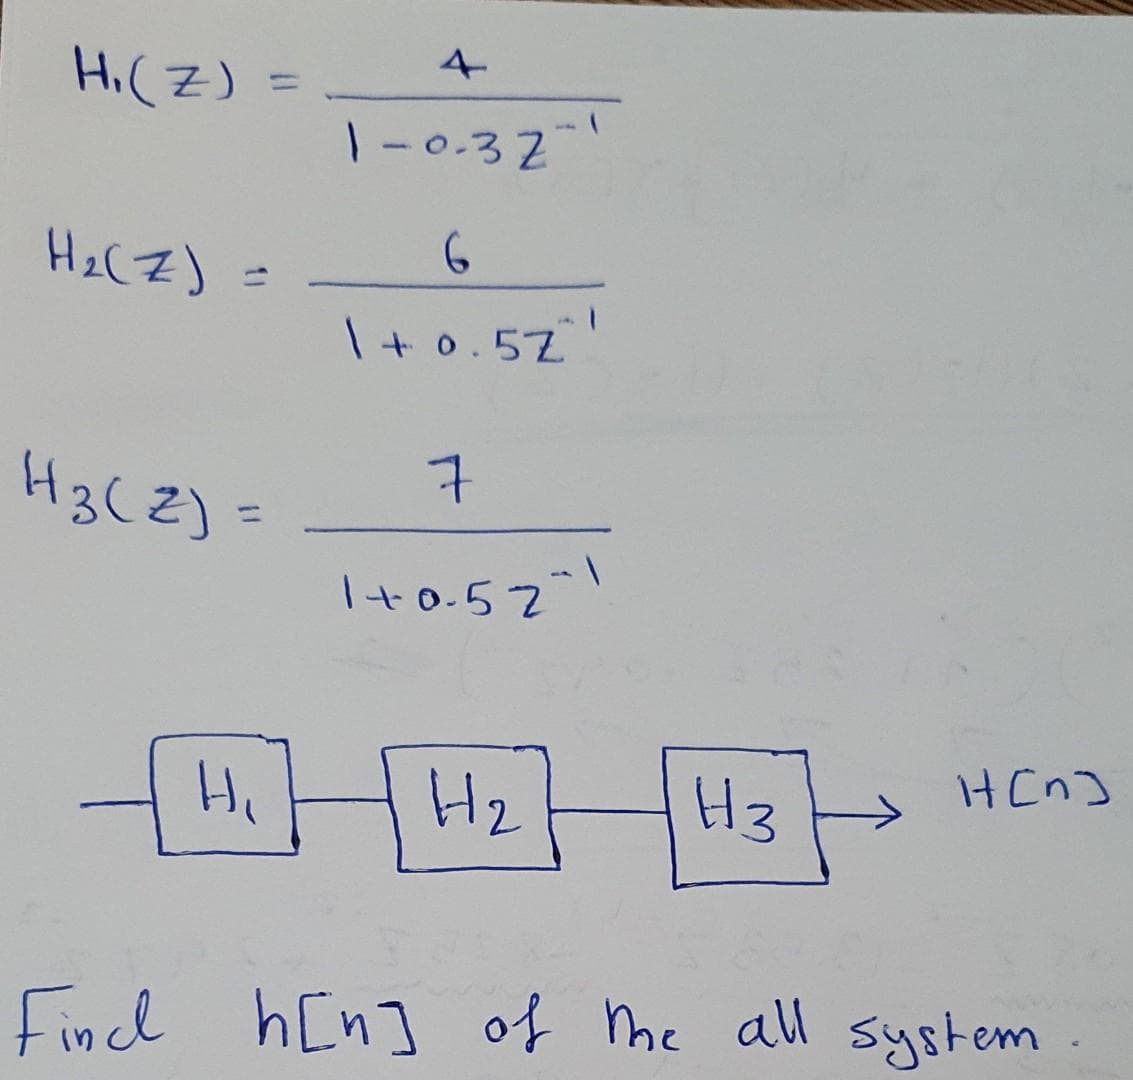 H₁(Z) = 4 / (1 - 0.3 Z⁻¹)
H₂(Z) = 6 / (1 + 0.5Z⁻¹)
H₃(Z) = 7 / (1 + 0.5 Z⁻¹)
H₁ H₂ H₃ H[n]
Find h[n] of the all system.